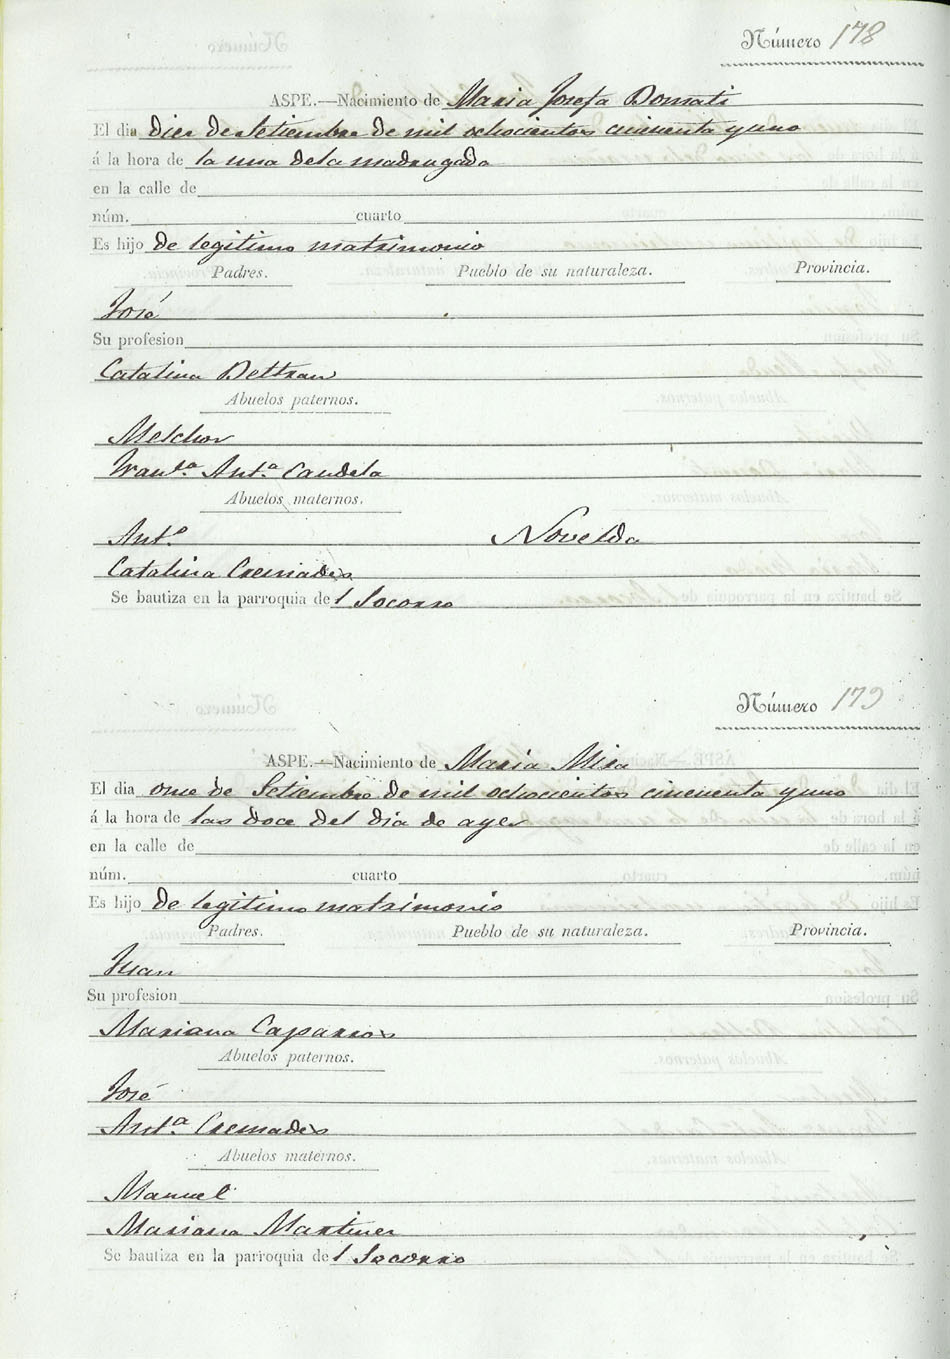 Número 178
ASPE.—Nacimiento de Maria Josefa Bonati
El dia diez de Setiembre de mil ochocientos cincuenta y uno
á la hora de la una de la madrugada
en la calle de
núm. cuarto
Es hijo de legitimo matrimonio
Padres. Pueblo de su naturaleza. Provincia.
José
Su profesion
Catalina Beltran
Abuelos paternos.
Melchor
Franca. Anta. Candela
Abuelos maternos.
Anto. Novelda
Catalina Cremades
Se bautiza en la parroquia del Socorro
Número 179
ASPE.—Nacimiento de Maria Mira
El dia once de Setiembre de mil ochocientos cincuenta y uno
á la hora de las doce del dia de ayer
en la calle de
núm. cuarto
Es hijo de legitimo matrimonio
Padres. Pueblo de su naturaleza. Provincia.
Juan
Su profesion
Mariana Caparros
Abuelos paternos.
José
Anta. Cremades
Abuelos maternos.
Manuel
Mariana Martinez
Se bautiza en la parroquia del Socorro